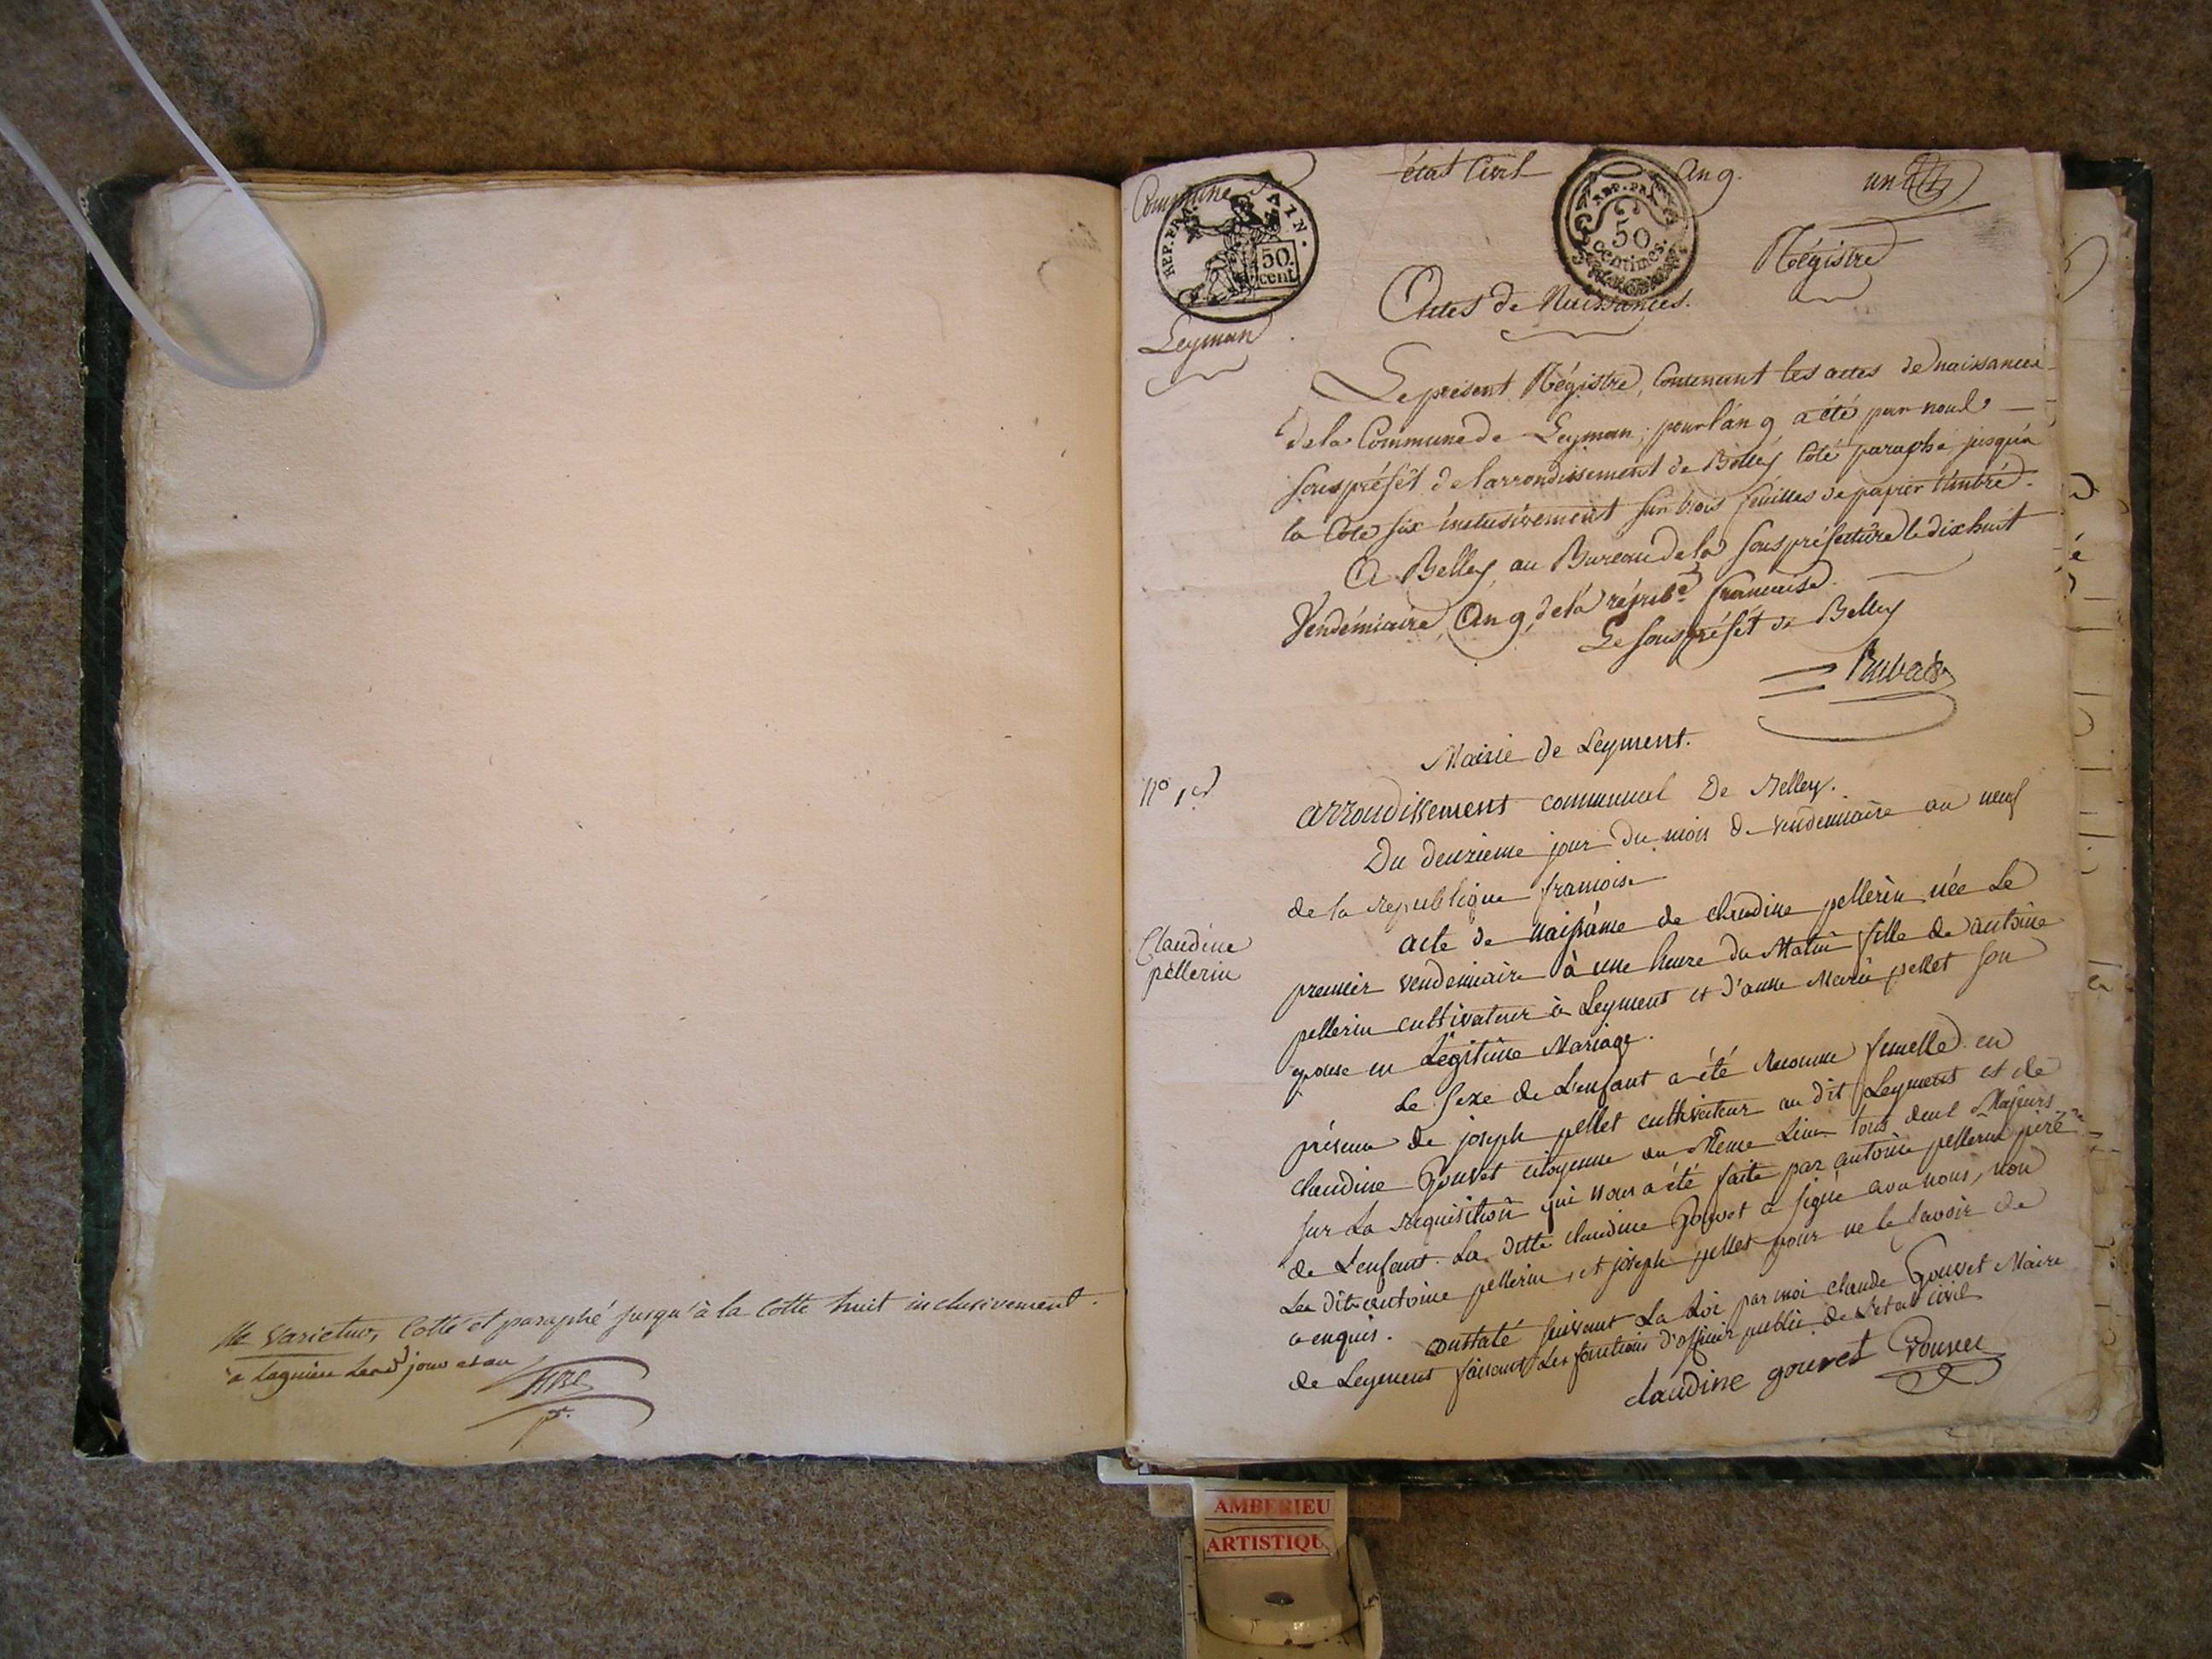 Ne Varietur, Cotté et paraphé jusqu'à la Cotte huit inclusivement.
a Lagnieu les d. jour et an
Commune
état Civil
An 9.
un
REP. FRA. AIN.
50. cent
REP. FRA.
50 centimes.
Régistre
Leyman
Actes de Naissances.
Le présent Régistre, Contenant les actes de naissances
de la Commune de Leyman, pour l'an 9 a été par nous
sous préfet de l'arrondissement de Belley Coté paraphé jusqu'a
la Cote six inclusivement sur trois feuilles de papier timbré.
A Belley, au Bureau de la sous préfecture le dix huit
Vendémiaire, An 9, de la répub.e française.
Le sous préfet de Belley
Mairie de Leyment.
N° 1er
arrondissement communal De Belley.
Du deuxieme jour du mois de vendemiaire an neuf
de la republique francoise
Claudine
pellerin
acte de naissance de claudine pellerin née Le
premier vendemiaire à une heure du Matin fille de antoine
pellerin cultivateur à Leyment et d'anne Marie pellet son
epouse en Légitime Mariage.
Le sexe de L'enfant a été reconnu femelle en
présence de joseph pellet cultivateur au dit Leyment et de
claudine Gouvet citoyenne du Même Lieu tous deux Majeurs
sur La requisition qui nous a été faite par antoine pellerin pere
de L'enfant. La ditte claudine Gouvet a signé avec nous, non
Les dits antoine pellerin, et joseph pellet pour ne le savoir de
ce enquis.
constaté suivant La Loi par moi claude Gouvet Maire
de Leyment faisant Les fonctions d'officier public de L'etat civil
claudine gouvet Gouvet
AMBERIEU
ARTISTIQU